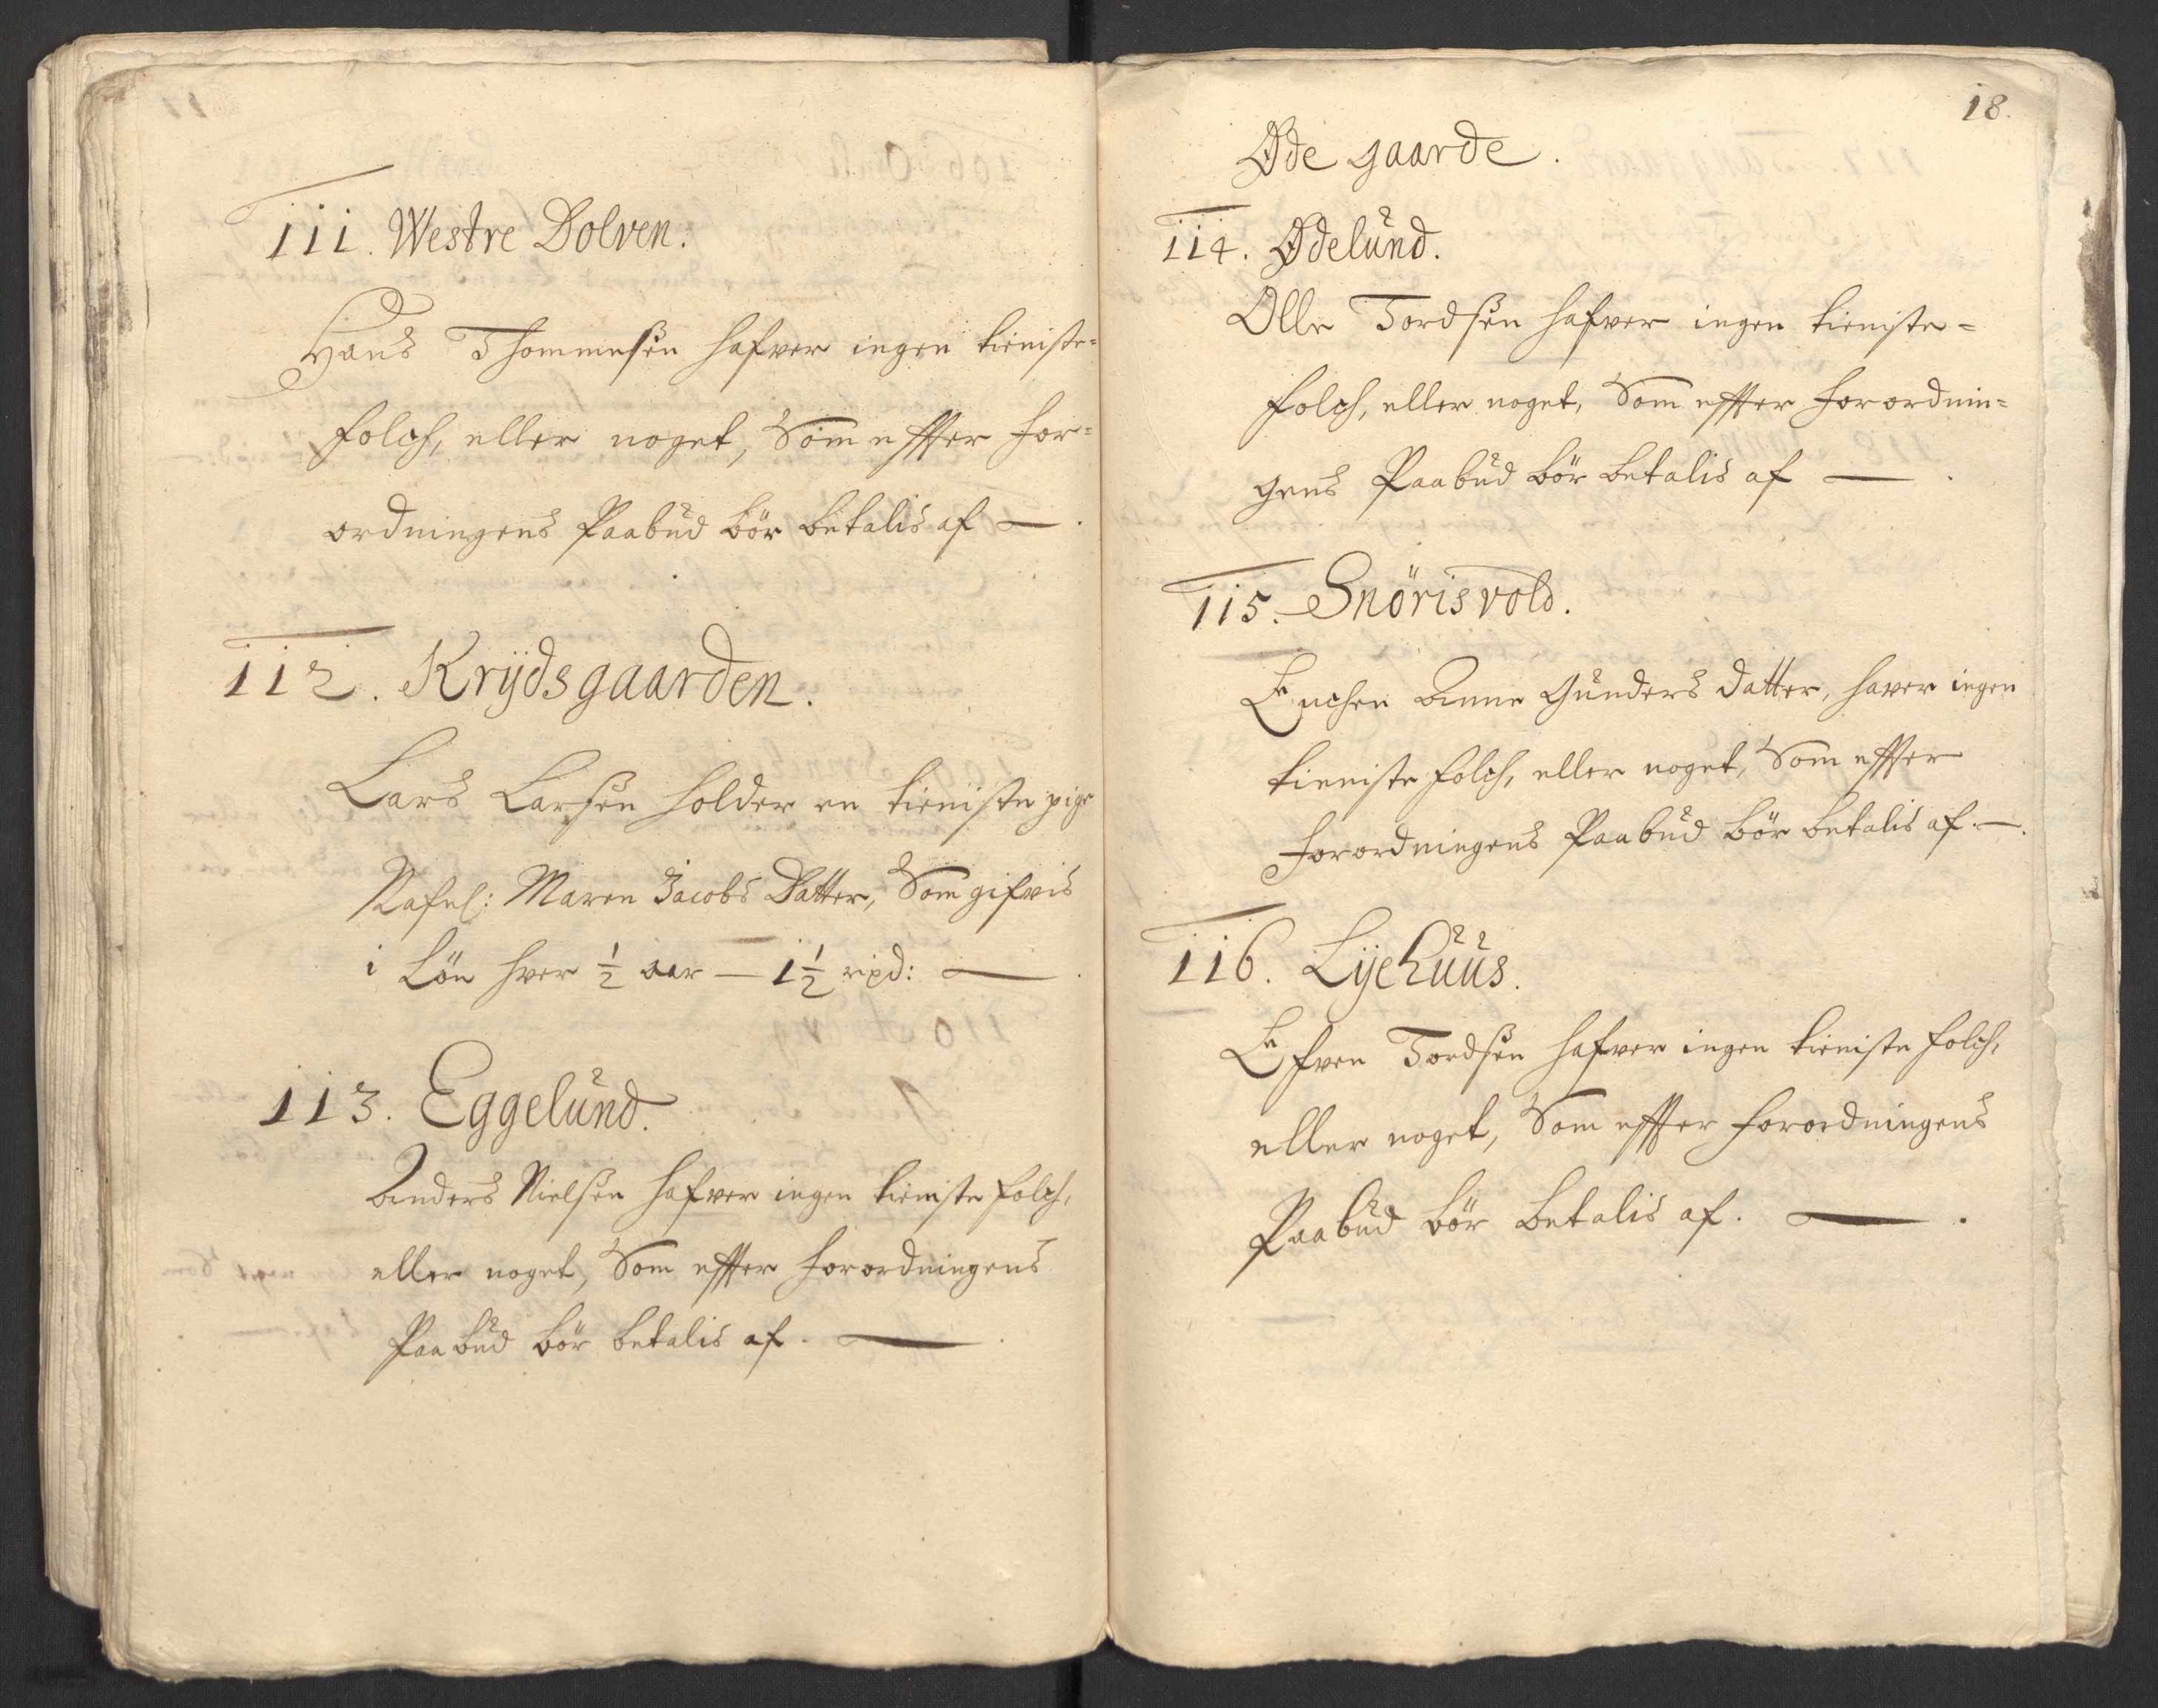 111. Westre Dolven.
Hans Thommesen hafver ingen tieniste-
folch, eller noget, Som effter For-
ordningens Paabud bör betalis af —.
112. Krijdsgaarden.
Lars Larsen holder en tieniste pige
Nafnl: Maren Jacobs Datter, Som gifvis
i Lön hver ½ aar — 1½ rixd: —.
113. Eggelund.
Anders Nielsen hafver ingen tieniste folch,
eller noget, Som effter Forordningens
Paabud bör betalis af. —.
18.
Øde gaarde.
114. Ødelund.
Olle Tordsen hafver ingen tieniste-
folch, eller noget, Som effter Forordnin-
gens Paabud bör betalis af —.
115. Snörisvold.
Enchen Anne Gunders datter, haver ingen
tieniste folch, eller noget, Som effter
Forordningens Paabud bör betalis af. —.
116. Lijehuus.
Efven Tordsen hafver ingen tieniste folch,
eller noget, Som effter Forordningens
Paabud bör betalis af. —.